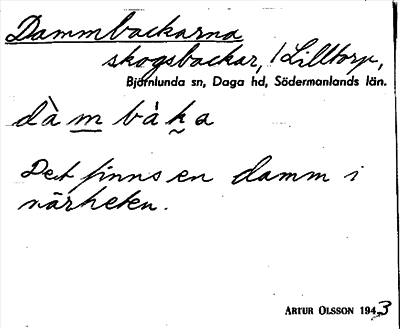 Dammbackarna
skogsbackar, Lilltorp,
Björnlunda sn, Daga hd, Södermanlands län.
dàmbàka
Det finns en damm i
närheten.
ARTUR OLSSON 1943